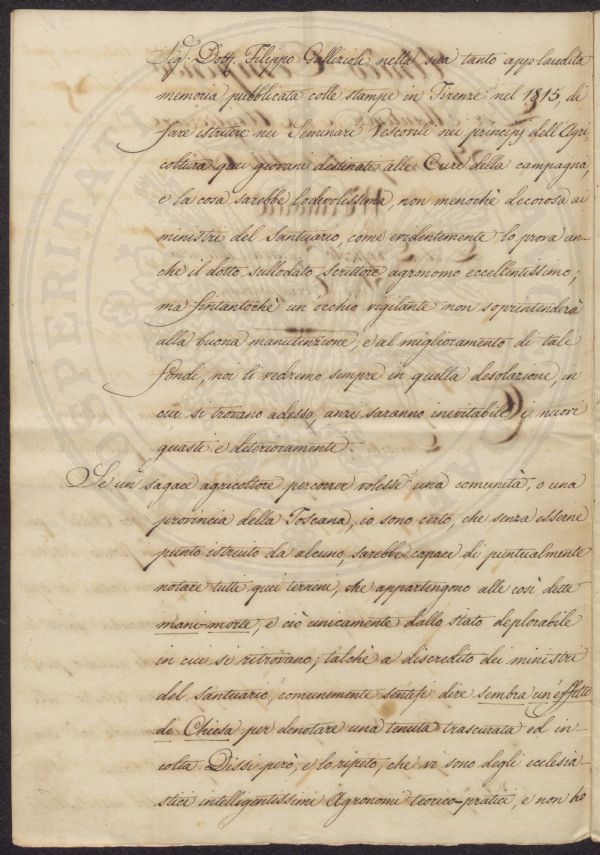 Sig.r Dott.r Filippo Gallizioli nella sua tanto applaudita
memoria pubblicata colle stampe in Firenze nel 1815, di
fare istruire nei Seminari Vescovili nei principj dell'Agri
coltura quei giovani destinati alle Cure della campagna,
e la cosa sarebbe lodevolissima, non menochè decorosa ai
ministri del Santuario, come evidentemente lo prova an-
che il dotto sullodato scrittore agronomo eccellentissimo;
ma fintantochè un'occhio vigilante non soprintenderà
alla buona manutenzione, e al miglioramento di tali
fondi, noi li vedremo sempre in quella desolazione, in
cui si trovano adesso, anzi saranno inevitabile i nuovi
guasti e deterioramente.
Se un sagace agricoltore percorrer volesse una comunità, o una
provincia della Toscana, io sono certo, che senza esserne
punto istruito da alcuno, sarebbe capace di puntualmente
notare tutti quei terreni, che appartengono alle così dette
mani-morte, e ciò unicamente dallo stato deplorabile
in cui si ritrovano; talchè a discredito dei ministri
del santuario, comunemente sentesi dire sembra un'effetto
di Chiesa per denotare una tenuta trascurata ed in-
colta. Dissi però, e lo ripeto, che vi sono degli ecclesia-
stici intelligentissimi Agronomi teorico-pratici, e non ho
PROSPERITATI